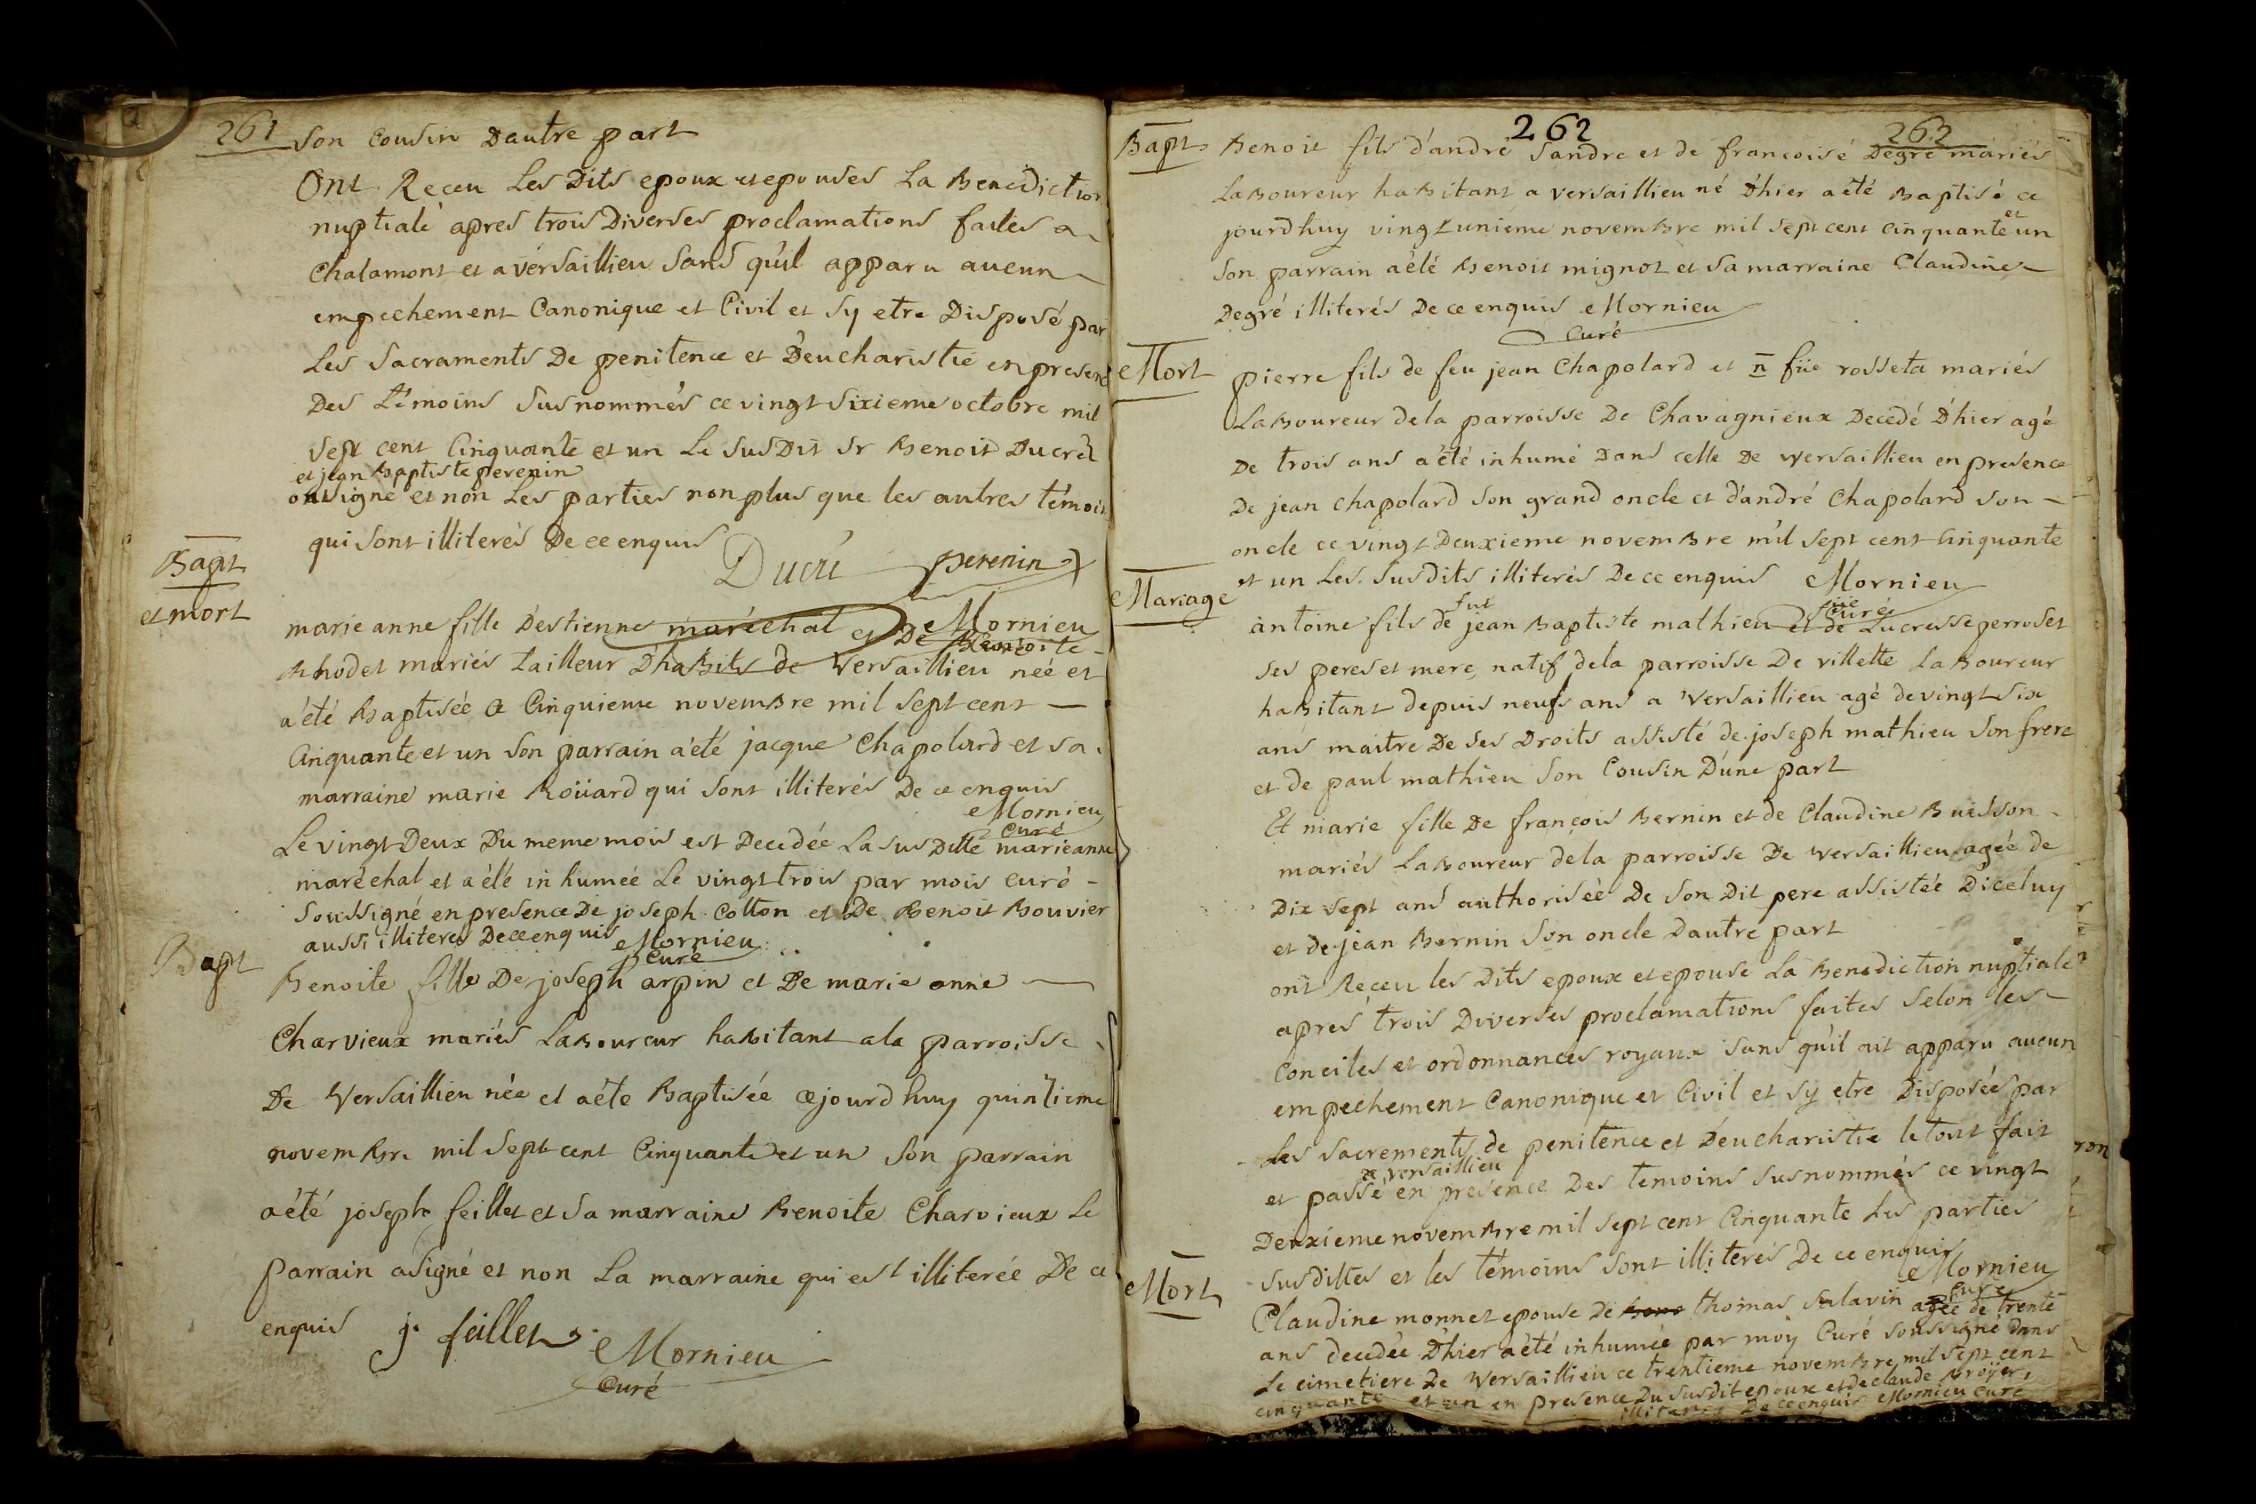 261
son cousin Dautre part
Ont Receu Les Dits epoux et epouses La Benediction
nuptiale apres trois Diverses proclamations faites a
Chalamont et a versaillieu sans qu'il apparu aucun
empechement Canonique et Civil et sy etre Disposé par
Les Sacraments De penitence et D'eucharistie en presence
Des témoins susnommés ce vingt sixieme octobre mil
sept cent Cinquante et un Le susDit sr Benoit Ducret
et jean Baptiste perenin
ont signé et non Les parties non plus que les autres témoins
qui sont illiterés De ce enquis
Ducré perenin
Mornieu
Curé
Bapt
et mort
marie anne fille D'estienne maréchal et De Benoite
Rhodet mariés tailleur D'haBits de Versaillieu née et
a été Baptisée ce Cinquieme novemBre mil sept cent
Cinquante et un Son parrain a été jacque Chapolard et sa
marraine marie Roüard qui sont illiterés De ce enquis
Mornieu
Curé
Le vingt Deux Du meme mois est Decedée La susDitte marieanne
maréchal et a été inhumée Le vingt trois par mois curé
soussigné en presence De joseph Cotton et De Benoit Bouvier
aussi illiteres De ce enquis Mornieu
Curé
Bapt
Benoite fille De joseph arpin et De marie anne
Charvieux mariés LaBoureur haBitant a la parroisse
De Versaillieu née et a éte Baptisée cejourdhuy quinzieme
novemBre mil sept cent Cinquante et un Son parrain
a été joseph feillet et sa marraine Benoite Charvieux Le
parrain a signé et non La marraine qui est illiterée De ce
enquis j. feillet
Mornieu
Curé
262
262
Bapt
Benoit fils d'andré Sandre et de francoise Degré mariés
LaBoureur haBitant a versaillieu né D'hier a été Baptisé ce
jourdhuy vingt unieme novemBre mil sept cent cinquante et un
son parrain a été Benoit mignot et sa marraine Claudine
Degré illiterés De ce enquis Mornieu
Curé
Mort
pierre fils de feu jean Chapolard et n̄ füe rosseta mariés
LaBoureur dela parroisse De Chavagnieux Decedé D'hier agé
De trois ans a été inhumé Dans celle De versaillieu en presence
De jean chapolard son grand oncle et d'andré Chapolard son
oncle ce vingt Deuxieme novemBre mil sept cent Cinquante
et un Les susdits illiterés De ce enquis Mornieu
Curé
Mariage
antoine fils de fut jean Baptiste mathieu et de füe Lucresse perroset
ses peres et mere, natif dela parroisse De villette LaBoureur
haBitant depuis neufs ans a Versaillieu agé de vingt six
ans maitre De ses Droits assisté de joseph mathieu son frere
et de paul mathieu son Cousin D'une part
Et marie fille De françois Bernin et de Claudine Buisson
mariés LaBoureur dela parroisse De versaillieu agée de
Dix sept ans authorisée De son Dit pere assistée D'iceluy
et de jean Bernin son oncle Dautre part
ont Receu les Dits epoux et epouse La Benediction nuptiale
apres trois Diverses proclamations faites selon les
Conciles et ordonnances royaux sans qu'il ait apparu aucun
empechement Canonique et Civil et sy etre Disposées par
Les Sacrements de penitence et D'eucharistie le tout fait
a versaillieu
et passé en presence Des temoins susnommés ce vingt
Deuxieme novemBre mil sept cent Cinquante Les parties
susdittes et les temoins sont illiterés De ce enquis Mornieu
Curé
Mort
Claudine monnet epouse De thomas salavin agée de trente
ans decedée D'hier a été inhumée par moy Curé soussigné dans
Le cimetiere De Versaillieu ce trentieme novemBre mil sept cent
cinquante et un en presence Du susdit epoux et de claude Broyer,
illiterés De ce enquis Mornieu curé
ron